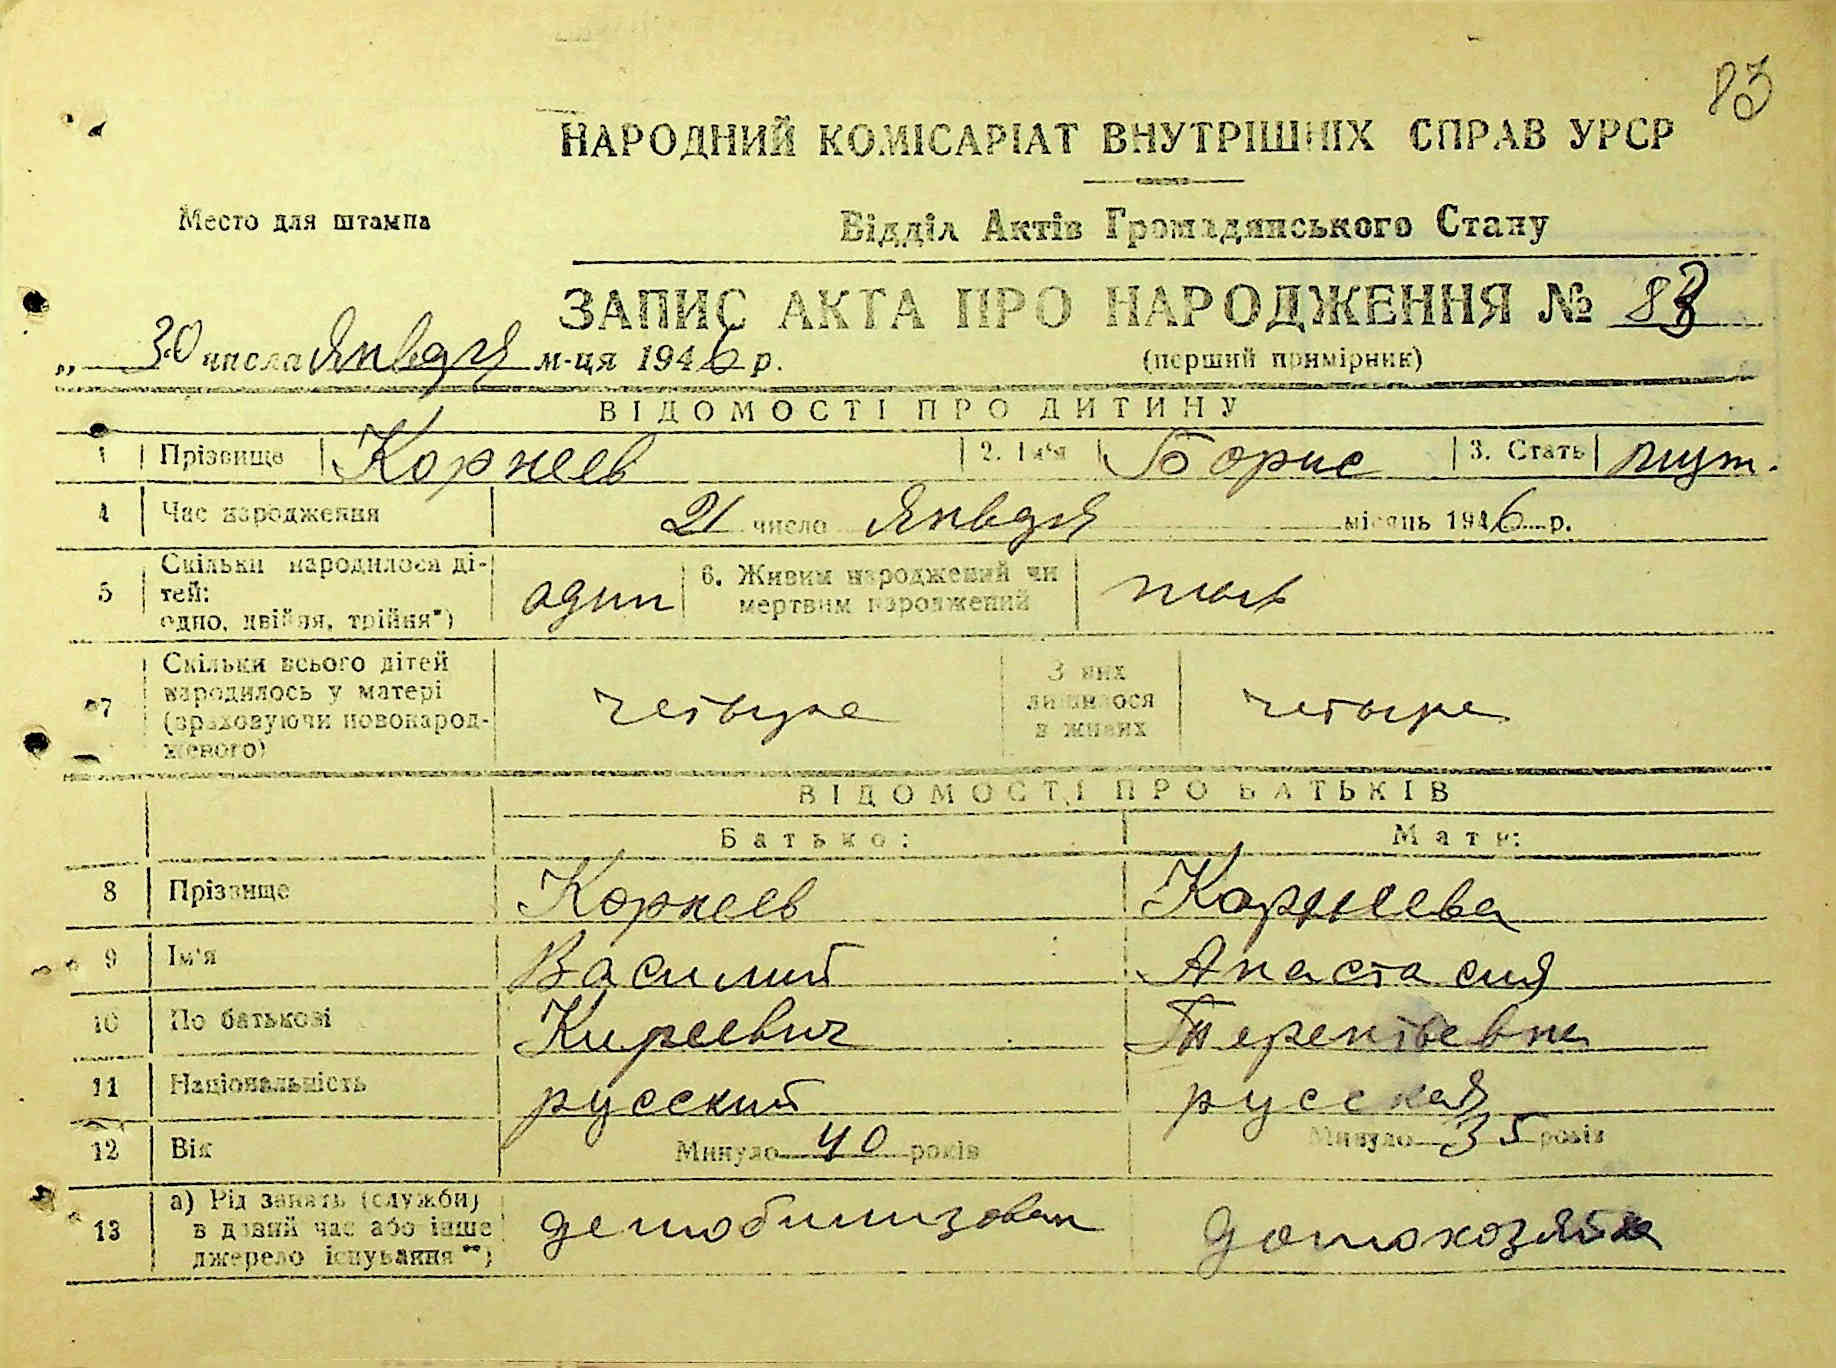 83
НАРОДНИЙ КОМІСАРІАТ ВНУТРІШНІХ СПРАВ УРСР
Место для штампа
Відділ Актів Громадянського Стану
ЗАПИС АКТА ПРО НАРОДЖЕННЯ № 83
„ 30 числа Января м-ця 1946 р.
(перший примірник)
ВІДОМОСТІ ПРО ДИТИНУ
1 Прізвище Корнеев 2. Ім'я Борис 3. Стать муж.
4 Час народження 21 число Января місяць 1946 р.
5 Скільки народилося ді-
тей:
одно, двійня, трійня*)
один
6. Живим народжений чи
мертвим народжений
7 Скільки всього дітей
народилось у матері
(враховуючи новонарод-
женого)
четыре
З них
лишилося
в живих
четыре
ВІДОМОСТІ ПРО БАТЬКІВ
Батько: Мати:
8 Прізвище Корнеев Корнеева
9 Ім'я Василий Анастасия
10 По батькові Киреевич Терентьевна
11 Національність русский русская
12 Вік Минуло 40 років Минуло 35 років
13 а) Рід занять (служби)
в даний час або інше
джерело існування**)
демобилизован домохозяйка